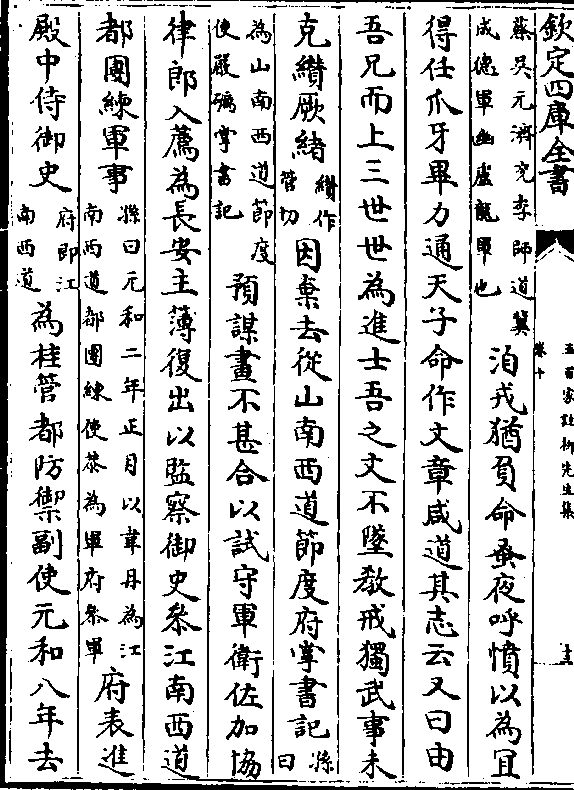 欽定四庫全書
五百家註柳先生集
卷十
十三
蔡吳元濟兖李師道冀
成德軍幽盧龍軍也
洎戎猶負命蚤夜呼憤以為宜
得任爪牙畢力通天子命作文章咸道其志云又曰由
吾兄而上三世世為進士吾之文不墜教戒獨武事未
克纘厥緒
纘作
管切
因棄去從山南西道節度府掌書記
孫
曰
為山南西道節度
使嚴礪掌書記
預謀畫不甚合以試守軍衛佐加協
律郎入薦為長安主薄復出以監察御史叅江南西道
都團練軍事
孫曰元和二年正月以韋丹為江
南西道都團練使為軍府叅軍
府表進
殿中侍御史
府即江
南西道
為桂管都防禦副使元和八年去